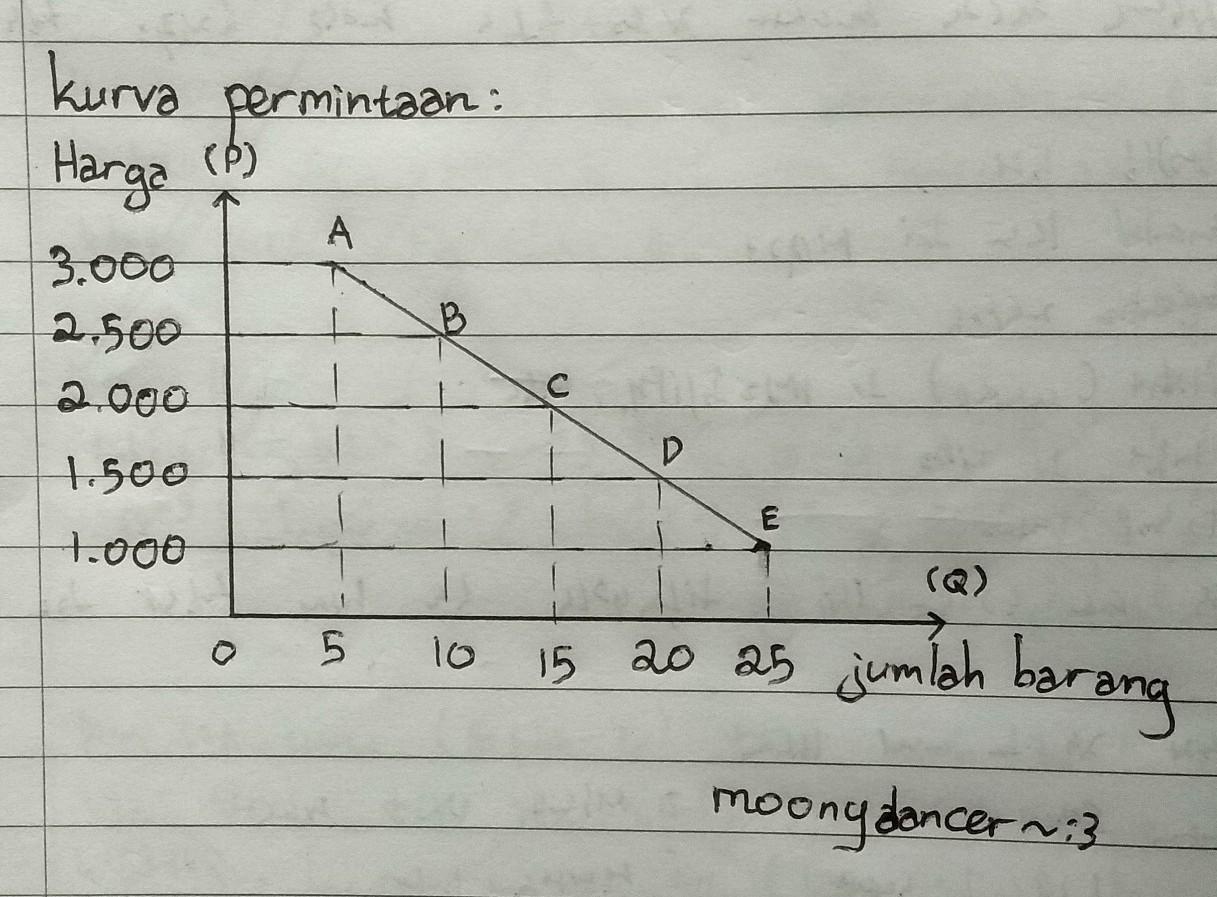 kurva permintaan:
Harga (P)
A
3.000
B
2.500
C
2.000
D
1.500
E
1.000
(Q)
0 5 10 15 20 25 jumlah barang
moongdancer~:3